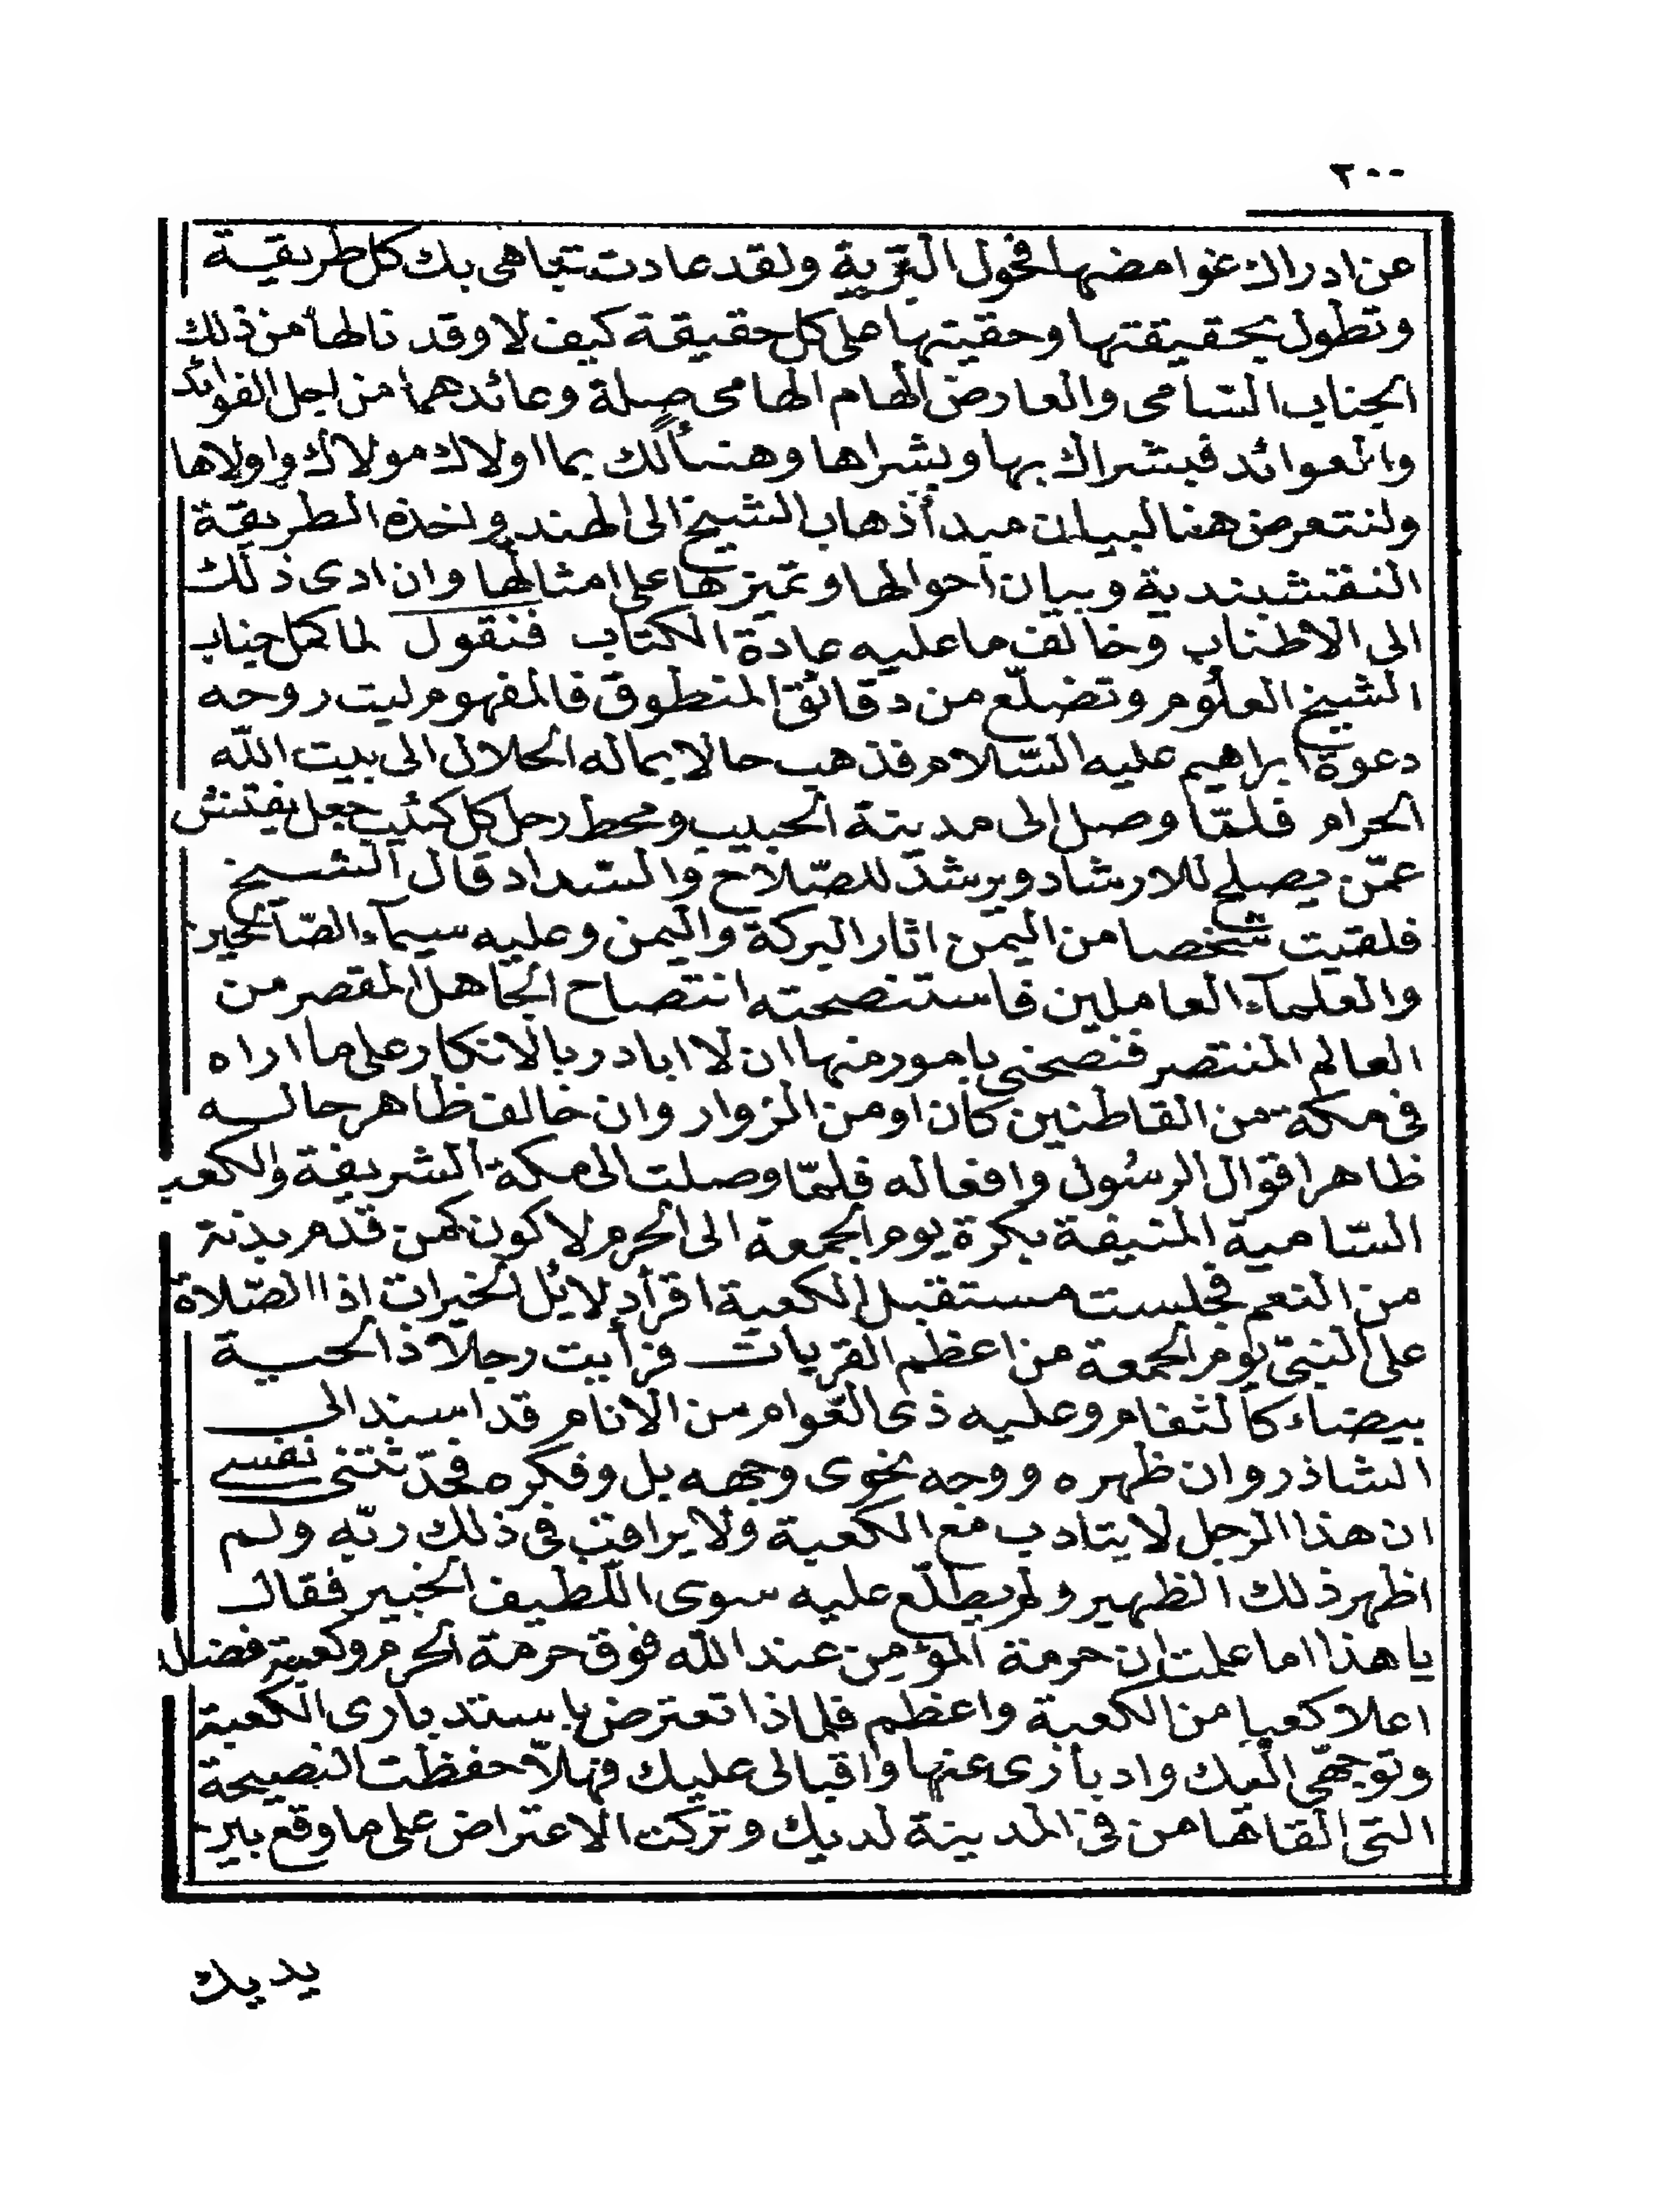 ٢٠٠
عن ادراك غوامضها فحول البرية ولقد عادت تتباهى بك كل طريقة
وتطول بحقيقتها وحقيتها على كل حقيقة كيف لا وقد نالها من ذلك
الجناب السامى والعارض الهام الهامى صلة وعائدهما من اجل الفوائد
والعوائد فبشراك بها وبشراها وهنـأ لك بما اولاك مولاك واولاها
ولنتعرض هنا لبيان مبدأ ذهاب الشيخ الى الهند واخذه الطريقة
النقشبندية وبيان احوالها وتميزها على امثالها وان ادى ذلك
الى الاطناب وخالف ما عليه عادة الكتاب فنقول لما كمل جناب
الشيخ العلوم وتضلّع من دقائق المنطوق فالمفهوم لبت روحه
دعوة ابراهيم عليه السّلام فذهب حالا بماله الحلال الى بيت الله
الحرام فلمّا وصل الى مدينة الحبيب ومحط رحل كل كئيب جعل يفتش
عمّن يصلح للارشاد ويرشد للصّلاح والسّداد قال الشيخ
فلقيت شخصا من اليمن اثار البركة واليمن وعليه سيمآء الصّالحين
والعلمآء العاملين فاستنصحته انتصاح الجاهل المقصر من
العالم المنتصر فنصحنى بامور منها ان لا ابادر بالانكار على ما اراه
فى مكة من القاطنين كان او من الزوار وان خالف ظاهر حاله
ظاهر اقوال الرسُول وافعاله فلمّا وصلت الى مكة الشريفة والكعبة
السّامية المنيفة بكرة يوم الجمعة الى الحرم لاكون كمن قدم بدنة
من النعم فجلست مستقبل الكعبة اقرأ دلائل الخيرات اذ الصّلاة
على النبىّ يوم الجمعة من اعظم القربات فرأيت رجلا ذا لحية
بيضاء كالثغام وعليه ذى العّوام من الانام قد اسند الى
الشاذروان ظهره ووجه نحوى وجهه بل وفكره فحدّثتنى نفسى
ان هذا الرجل لا يتادب مع الكعبة ولا يراقب فى ذلك ربّه ولم
اظهر ذلك الظهير ولم يطلّع عليه سوى اللّطيف الخبير فقال
يا هذا اما علمت ان حرمة المؤمن عند الله فوق حرمة الحرم وكعبة فضله
اعلا كعبا من الكعبة واعظم فلماذا تعترض باستدبارى الكعبة
وتوجّهى اليك وادبارى عنها واقبالى عليك فهلّا حفظت النصيحة
التى القاها من فى المدينة لديك وتركت الاعتراض على ما وقع بين
يديك